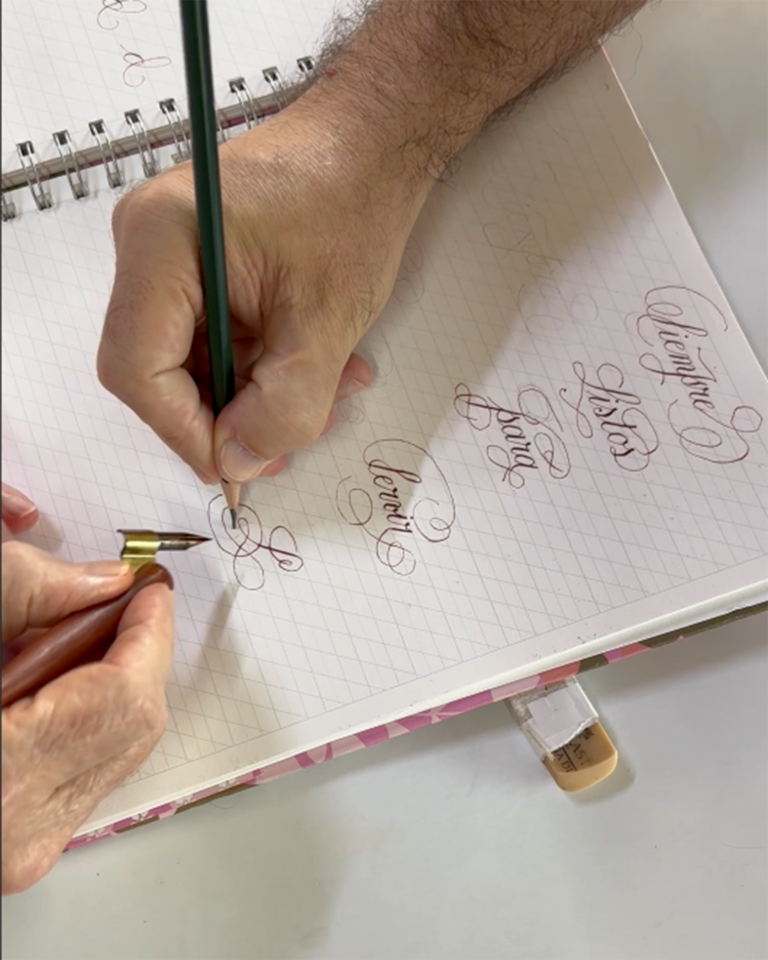 d
Siempre
Listos
para
Servir
Le